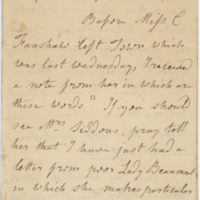 Before Miss C
Fanshaw left Town which
was last wednesday, I received
a note from her in which are
these words " If you should
see Mrs Siddons, pray tell
her that I have just had a
letter from poor Lady Beaumont
in which she makes particular